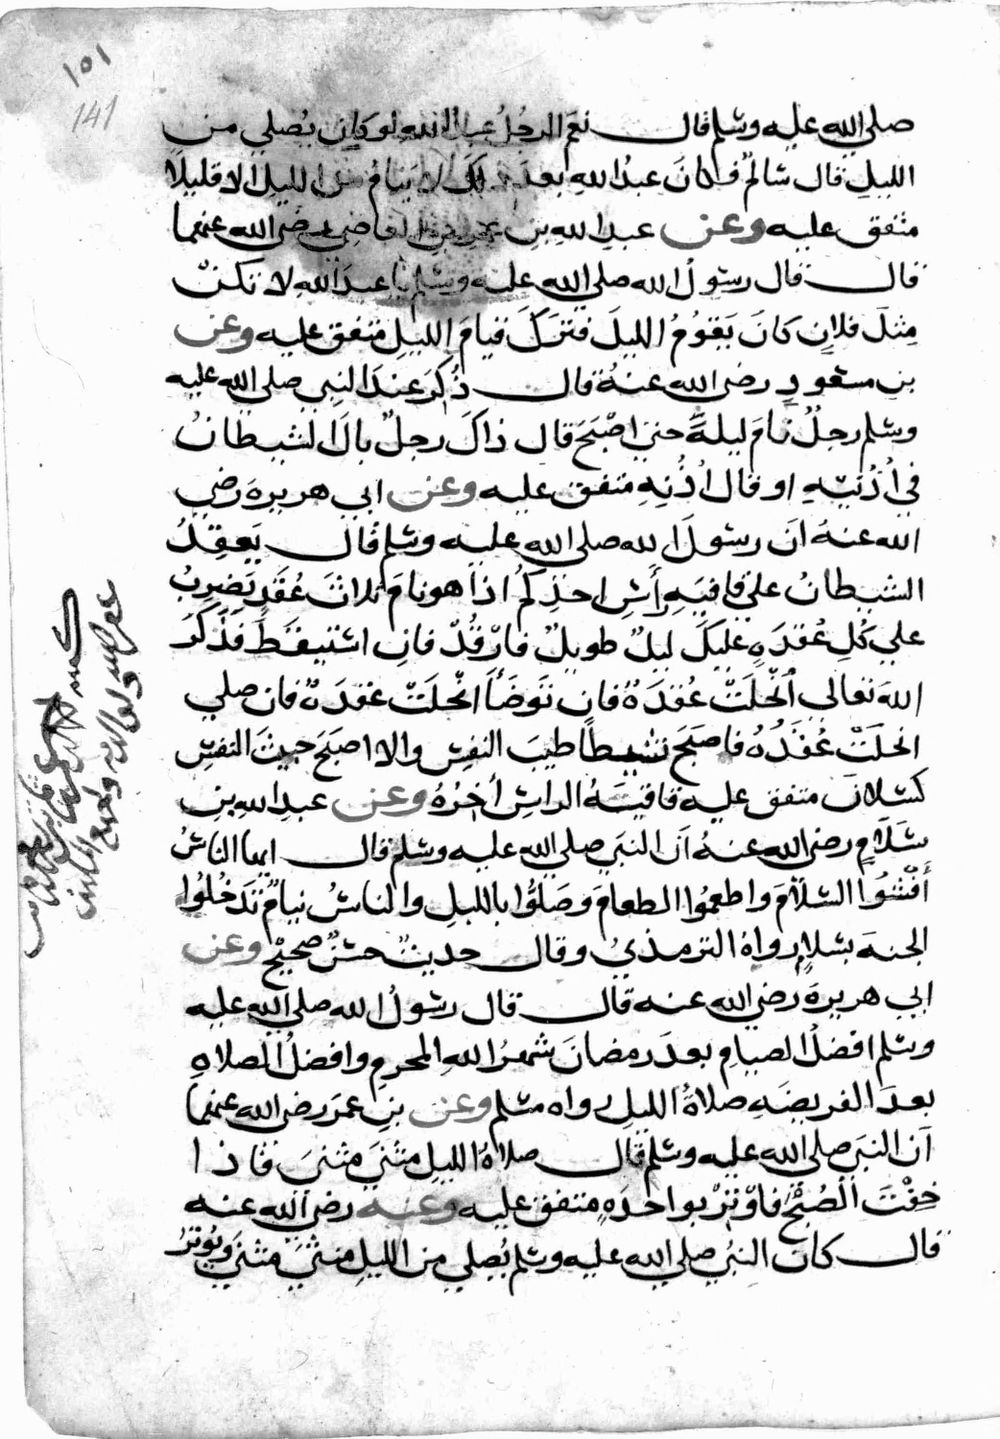 ١٥١
141
صلى الله عليه وسلم قال نعم الرجل عبد الله لو كان يصلي من
الليل قال سالم فكان عبد الله بعد ذلك لا ينام من الليل الا قليلا
متفق عليه وعن عبد الله بن عمرو بن العاصي رضي الله عنهما
قال قال رسول الله صلى الله عليه وسلم يا عبد الله لا تكن
مثل فلان كان يقوم الليل فترك قيام الليل متفق عليه وعن
بن مسعود رضي الله عنه قال ذكر عند النبي صلى الله عليه
وسلم رجل نام ليلة حتى اصبح قال ذاك رجل بال الشيطان
في أذنيه او قال أذنه متفق عليه وعن ابي هريرة رضي
الله عنه ان رسول الله صلى الله عليه وسلم قال يعقد
الشيطان على قافية رأس احدكم اذا هو نام ثلاث عقد يضرب
على كل عقدة عليك ليل طويل فارقد فان استيقظ فذكر
الله تعالى انحلت عقدة فان توضأ انحلت عقدة فان صلي
انحلت عقده فاصبح نشيطا طيب النفس والا اصبح خبيث النفس
كسلان متفق عليه قافية الراس أخره وعن عبد الله بن
سلام رضي الله عنه أن النبي صلى الله عليه وسلم قال ايها الناس
أفشوا السلام واطعموا الطعام وصلوا بالليل والناس نيام تدخلوا
الجنة بسلام رواه الترمذي وقال حديث حسن صحيح وعن
ابي هريرة رضي الله عنه قال قال رسول الله صلى الله عليه
وسلم افضل الصيام بعد رمضان شهر الله المحرم وافضل الصلاة
بعد الفريضة صلاة الليل رواه مسلم وعن بن عمر رضي الله عنهما
أن النبي صلى الله عليه وسلم قال صلاة الليل مثنى مثنى فاذا
خفت الصبح فاوتر بواحدة متفق عليه وعنه رضي الله عنه
قال كان النبي صلى الله عليه وسلم يصلي من الليل مثنى مثنى ويوتر